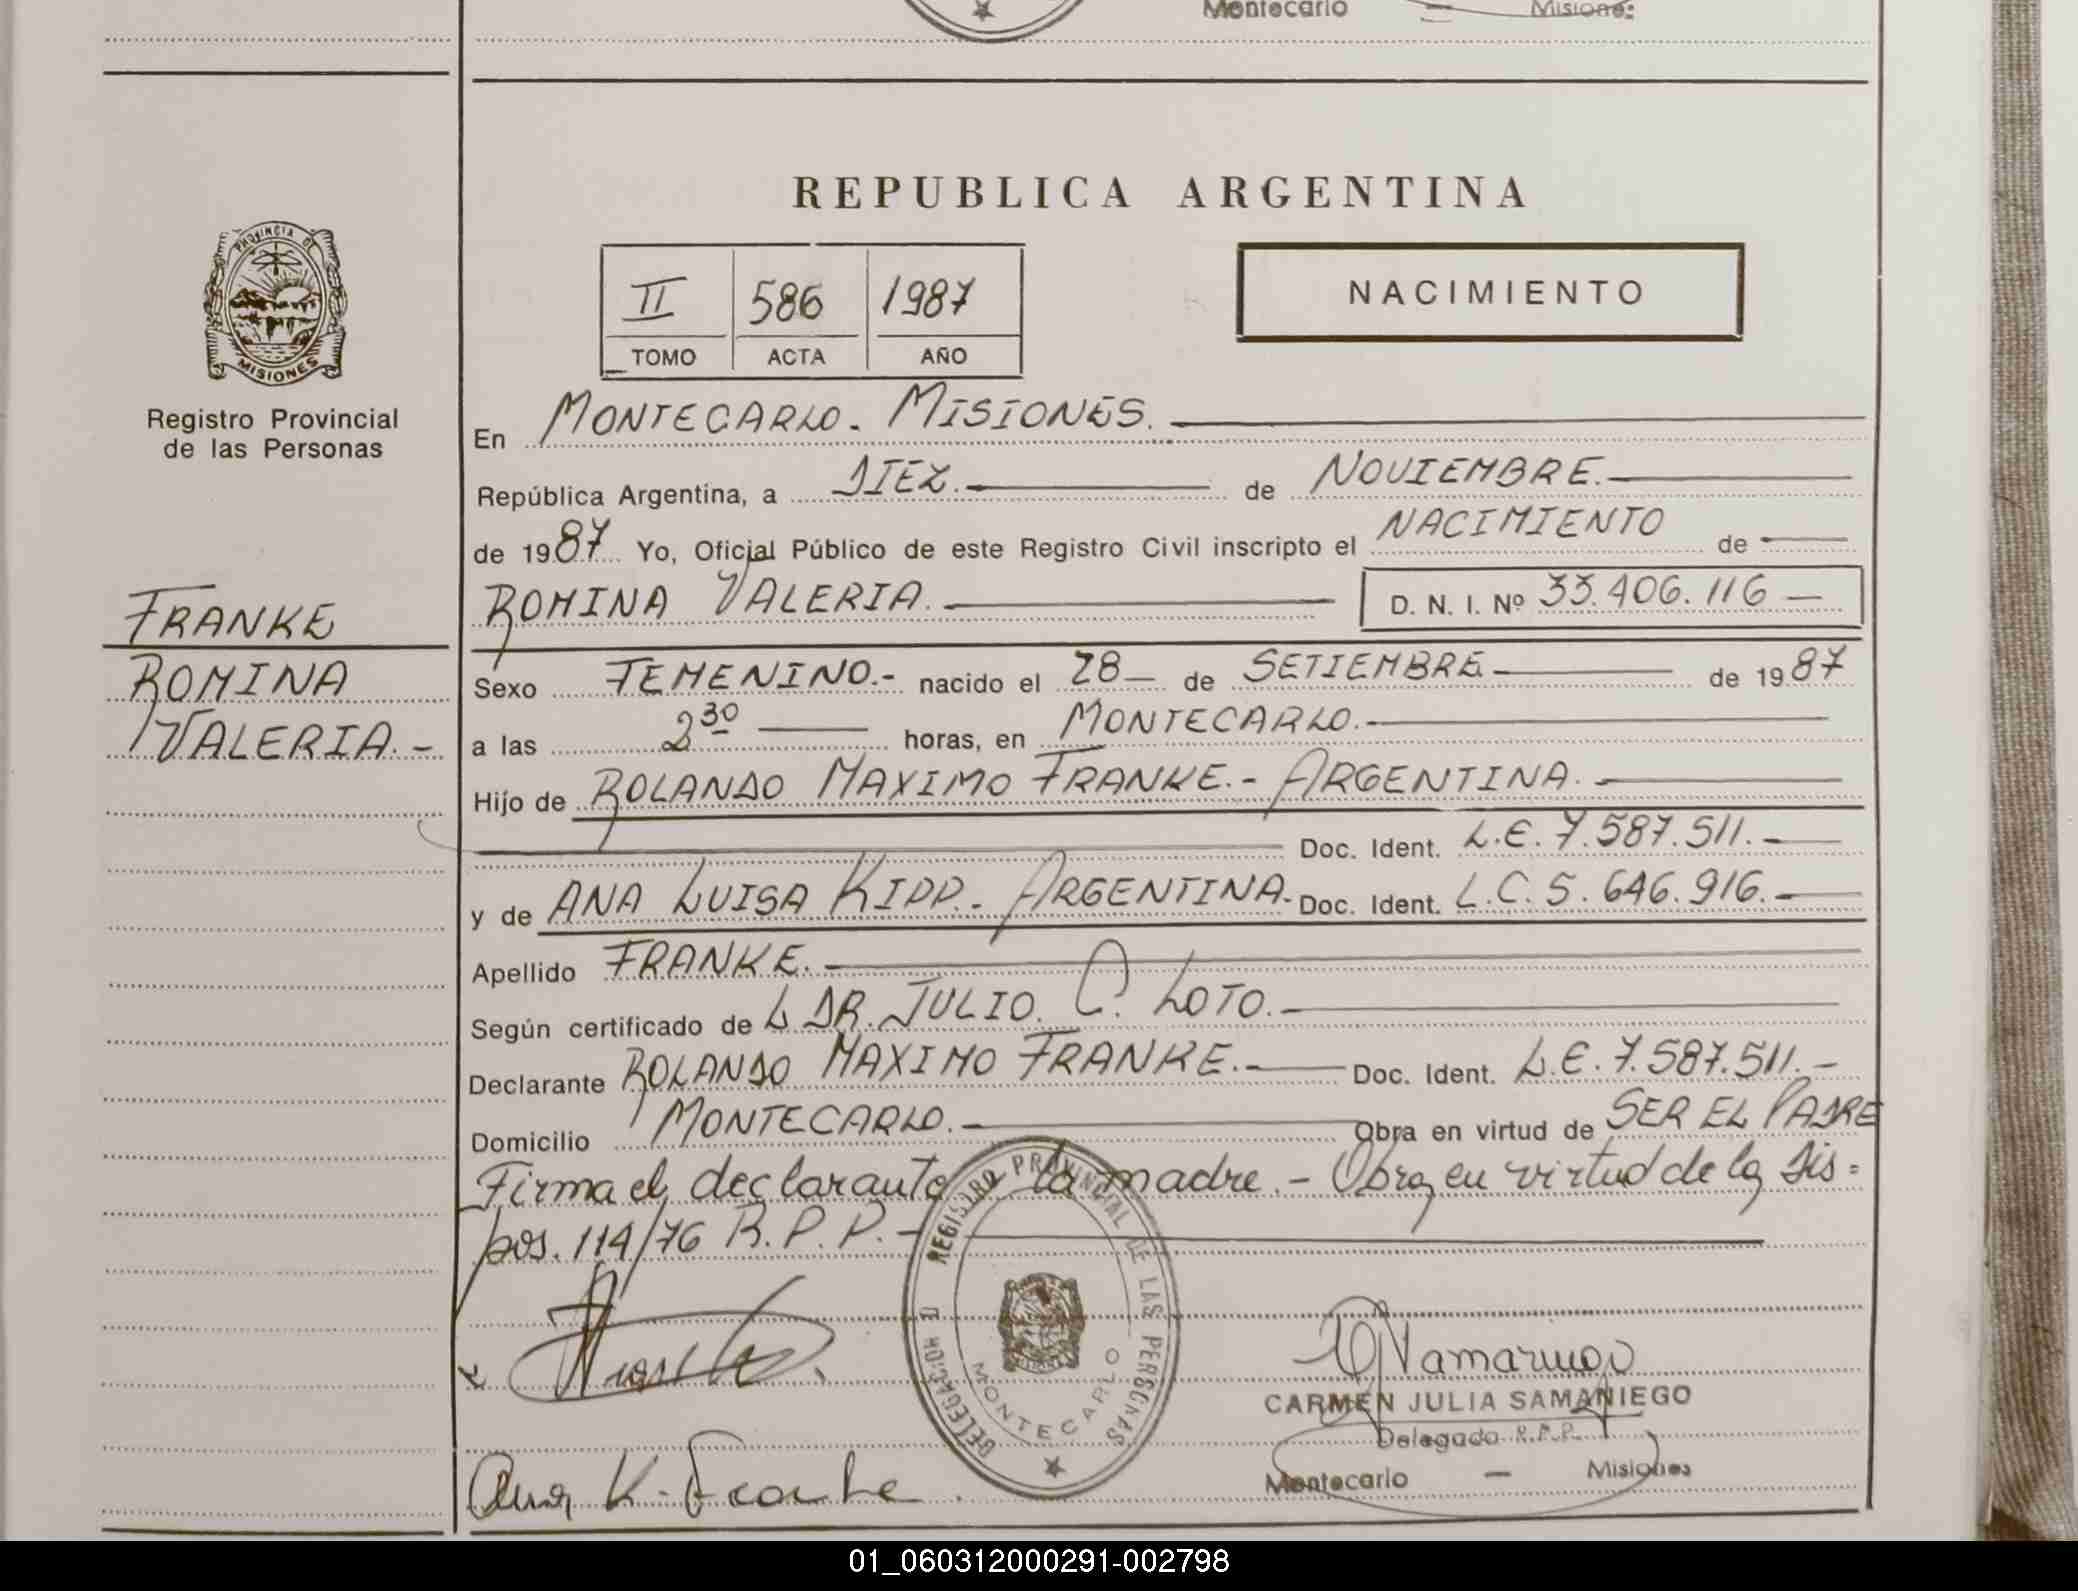 Montecarlo — Misiones
REPUBLICA ARGENTINA
PROVINCIA DE
MISIONES
Registro Provincial
de las Personas
II 586 1987
TOMO ACTA AÑO
NACIMIENTO
En MONTECARLO. MISIONES.
República Argentina, a DIEZ. de NOVIEMBRE.
de 1987 Yo, Oficial Público de este Registro Civil inscripto el NACIMIENTO de
ROMINA VALERIA. D. N. I. Nº 33.406.116 —
FRANKE
ROMINA
VALERIA.-
Sexo FEMENINO.- nacido el 28 — de SETIEMBRE de 1987
a las 2 30 horas, en MONTECARLO.
Hijo de ROLANDO MAXIMO FRANKE.- ARGENTINA.
Doc. Ident. L.E. 7.587.511.-
y de ANA LUISA KIPP.- ARGENTINA. Doc. Ident. L.C. 5.646.916.-
Apellido FRANKE.
Según certificado de L DR. JULIO. C. LOTO.
Declarante ROLANDO MAXIMO FRANKE.- Doc. Ident. L.E. 7.587.511.-
Domicilio MONTECARLO.- Obra en virtud de SER EL PADRE
Firma el declarante y la madre.- Obra en virtud de la Dis=
pos. 114/76 R.P.P.-
DELEGACION REGISTRO PROVINCIAL DE LAS PERSONAS
MONTECARLO
CARMEN JULIA SAMANIEGO
Delegado R.P.P.
Montecarlo — Misiones
Ana K. Franke
01_060312000291-002798